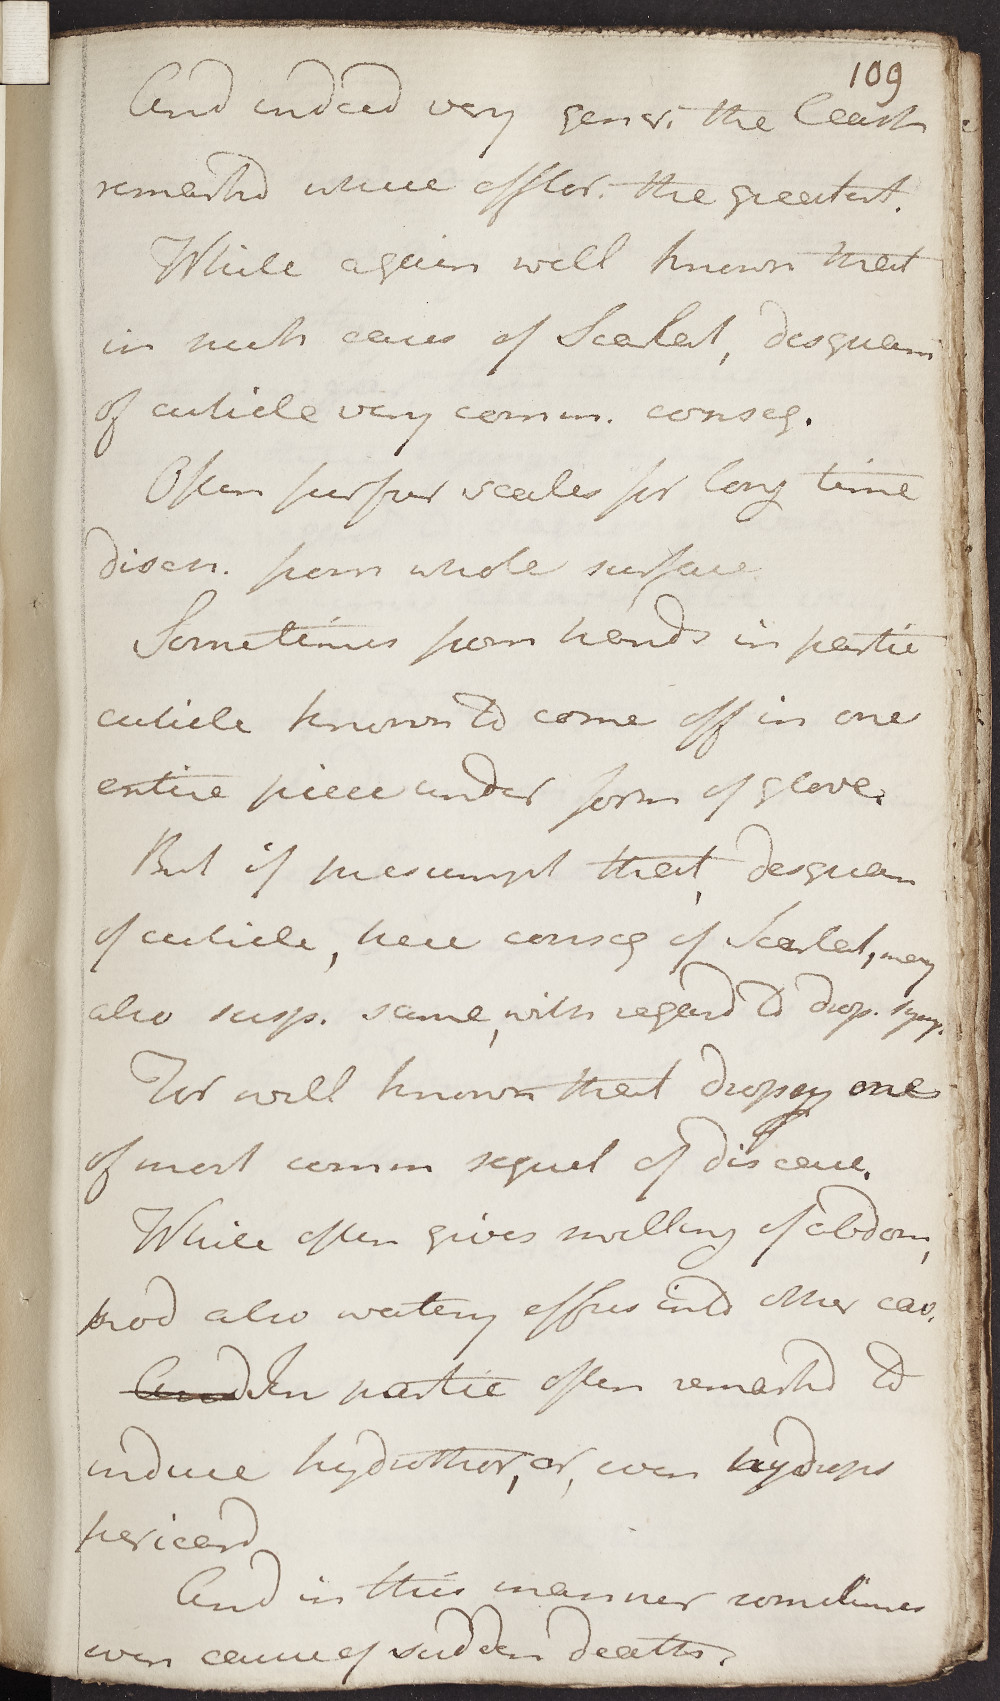 109
And indeed very gener. the least
remarkd where efflor. the greatest.
While again well known that
in such cases of Scarlat, desquam
of cuticle very comm. conseq.
Often furfur scales for long time
disch. from whole surface
Sometimes from hands in partic
cuticle known to come off in one
entire piece under form of glove.
But if presumpt that, desquam
of cuticle, here conseq of Scarlat, may
also susp. same, with regard to drop. symp.
For well known that dropsy one
of most comm sequel of disease.
While often gives swelling of abdom,
prod also watery effus into other cav.
And In partic often remarkd to
induce hydrothor, or, even hydrops
pericard
And in this manner sometimes
even cause of sudden death.